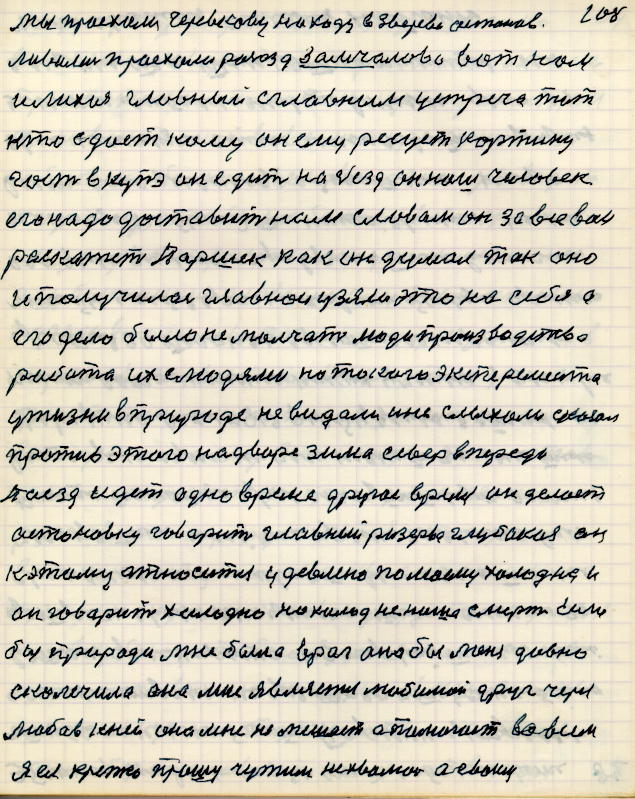 208
мы проехали Черевковку находу в Зверево останов.
ливали проехали розезд Замчалово вот нам
и лихая главный сглавным устреча тут
кто сдоет кому он ему ресует кортину
гост в купэ он едит на уезд он наш человек
его надо доставит нам словам он за все вам
раскажет Паршек как он думал так оно
и получилос главнои узяли это на себя а
его дело было не молчат люди производство
работа их с людями но такого эксперемента
у жизни в природе не видали и не слыхали сказал
против этого надворе зима север впереди
поезд идет одно время другое время он делает
астоновку говарит главный резерв глубакая он
к этому относится удевлено по моему холодна и
он говарит холодно но холод не наша смерт если
бы природа мне была враг она бы меня давно
сколечила она мне является любимой друг через
любов к ней она мне не мешает а помогает во всем
я ей крепко прошу чужим нехвалюс а своим